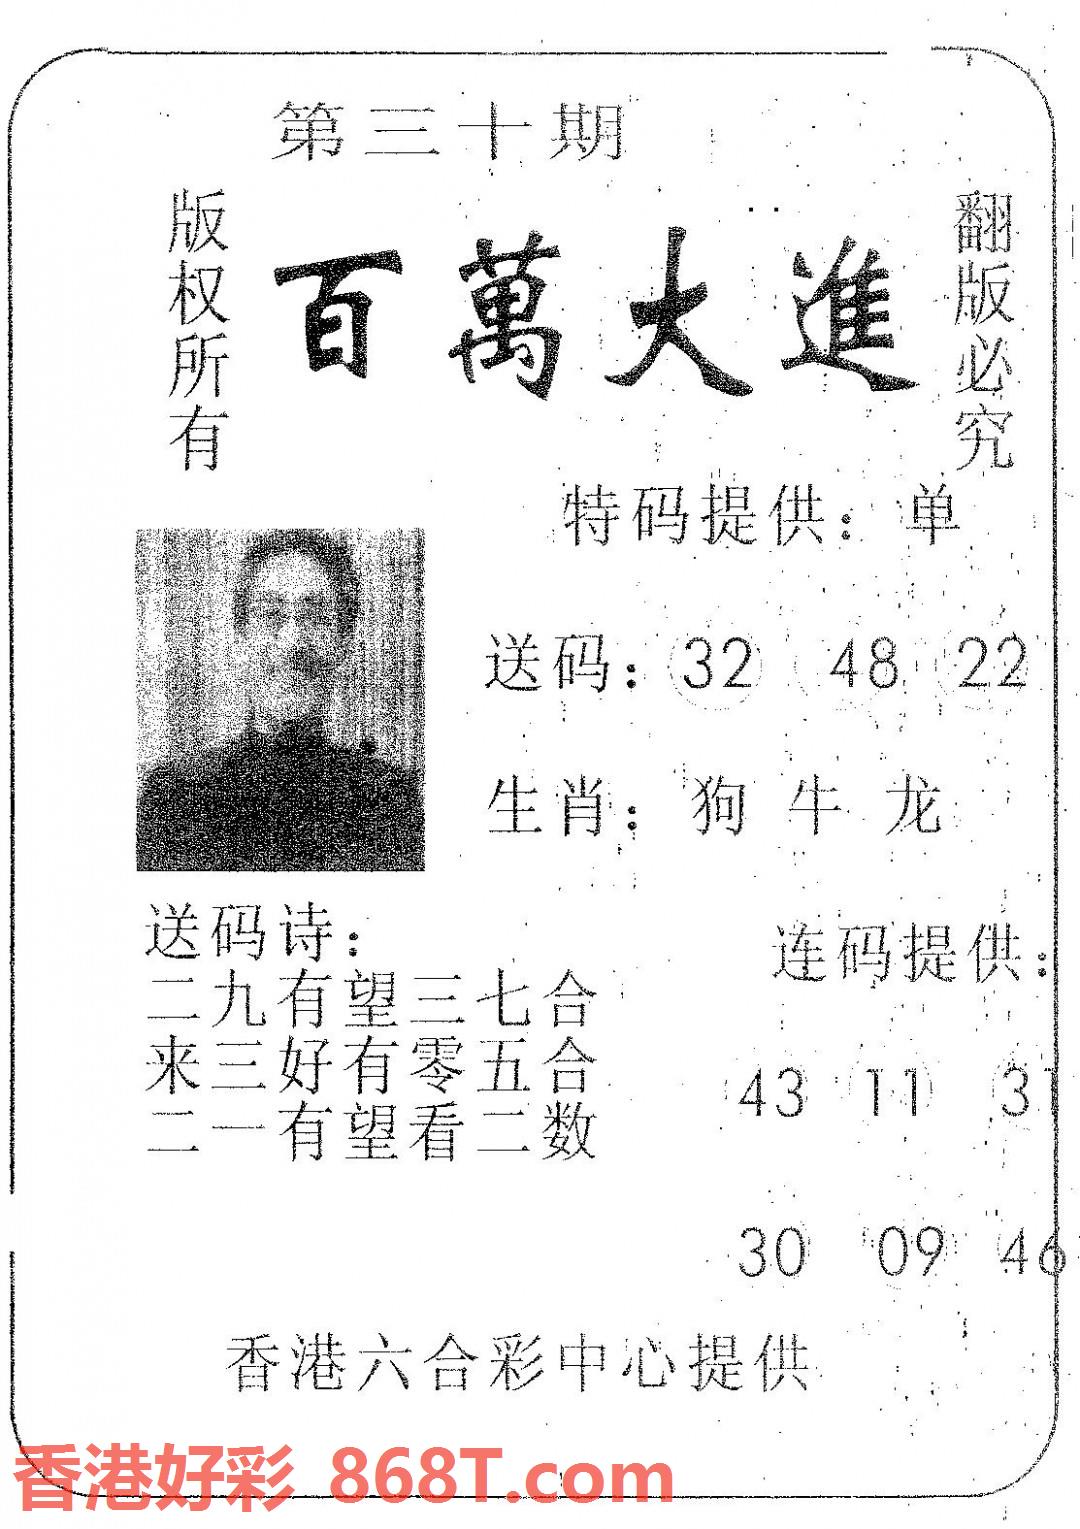 第三十期
版权所有
百萬大進
翻版必究
特码提供：单
送码：32 48 22
生肖：狗 牛 龙
送码诗：
二九有望三七合
来三好有零五合
二一有望看二数
连码提供：
43 11 31
30 09 46
香港六合彩中心提供
香港好彩 868T.com